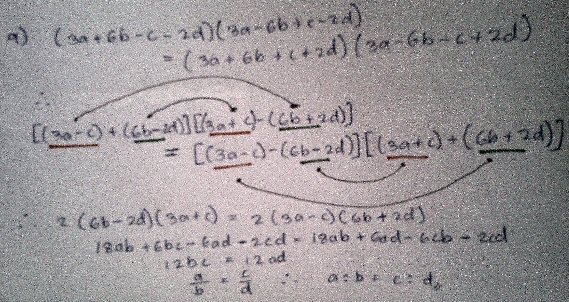 a) (3a+6b-c-2d)(3a-6b+c-2d)
= (3a+6b+c+2d)(3a-6b-c+2d)
∴
[(3a-c)+(6b-2d)][(3a+c)-(6b+2d)]
= [(3a-c)-(6b-2d)][(3a+c)+(6b+2d)]
∴ 2(6b-2d)(3a+c) = 2(3a-c)(6b+2d)
18ab+6bc-6ad-2cd = 18ab+6ad-6cb-2cd
12bc = 12ad
a/b = c/d ∴ a:b = c:d,